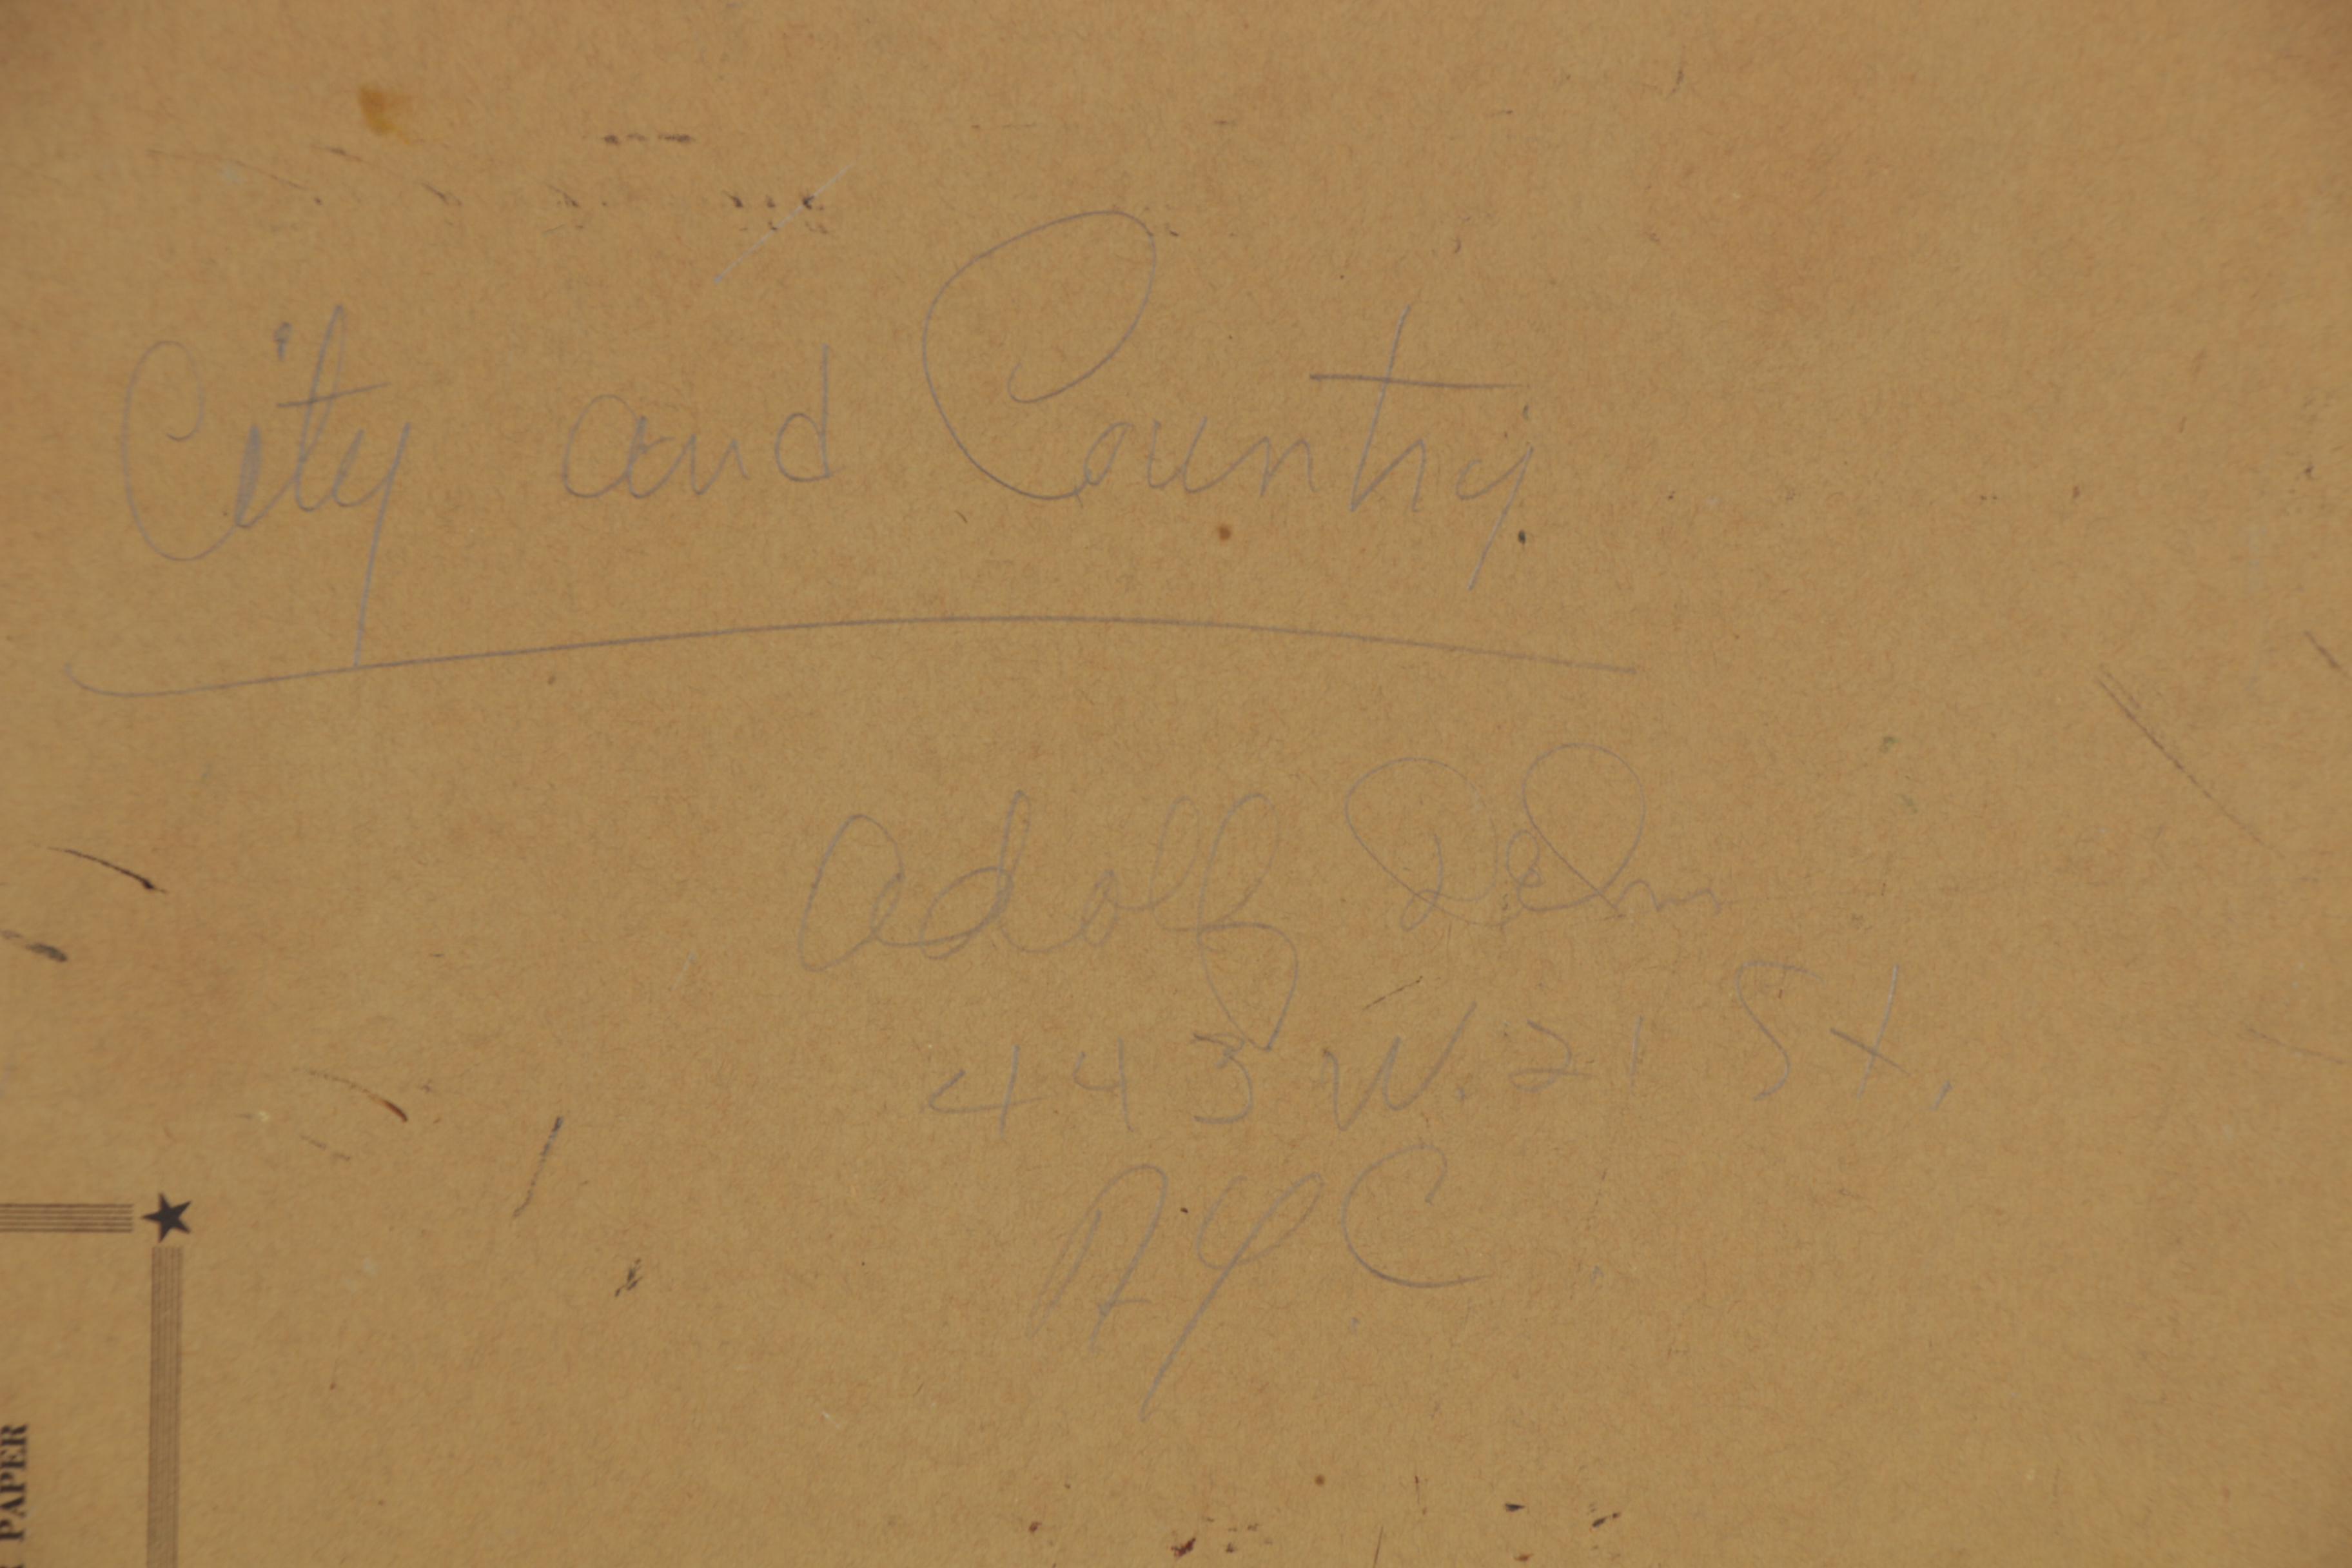 City and Country
Adolf Dehn
443 W. 21 St.
NYC
PAPER